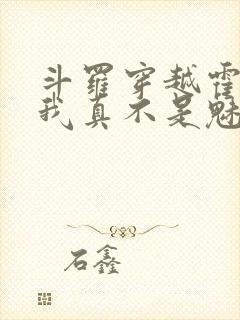 斗罗穿越霍
我真不是魅
石鑫